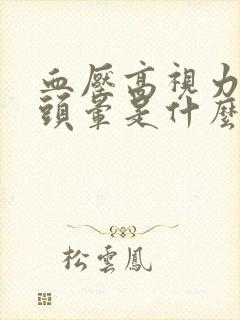 血壓高視力
頭暈是什麼
松雲鳳